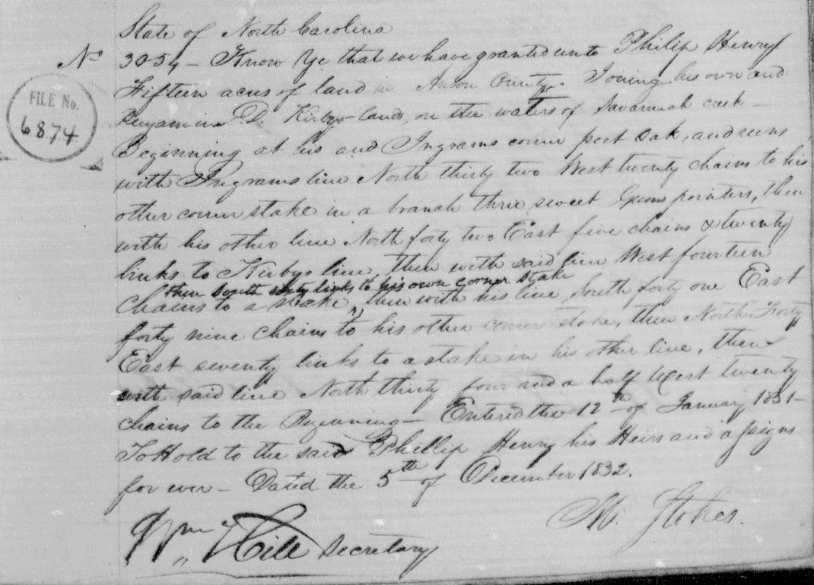 State of North Carolina
No 3054 - Know Ye that we have granted unto Philip Henry
FILE No.
6874
Fifteen acres of land in Anson County. Joining his own and
Benjamin D. Kirby lands, on the waters of Savannah creek -
Beginning at his and Ingrams corner post Oak, and runs
with Ingrams line North thirty two West twenty chains to his
other corner stake in a branch three sweet Gum pointers, then
with his other line North forty two East five chains & twenty
links to Kirbys line, then with said line West fourteen
then South sixty links to his own corner stake
chains to a stake, then with his line South forty one East
forty nine chains to his other corner stake, then North Forty
East seventy links to a stake in his other line, then
with said line North thirty four and a half West twenty
chains to the Beginning - Entered the 12th of January 1831-
To Hold to the said Phillip Henry his Heirs and assigns
for ever - Dated the 5th of December 1832.
Wm Hill Secretary
M. Stokes.